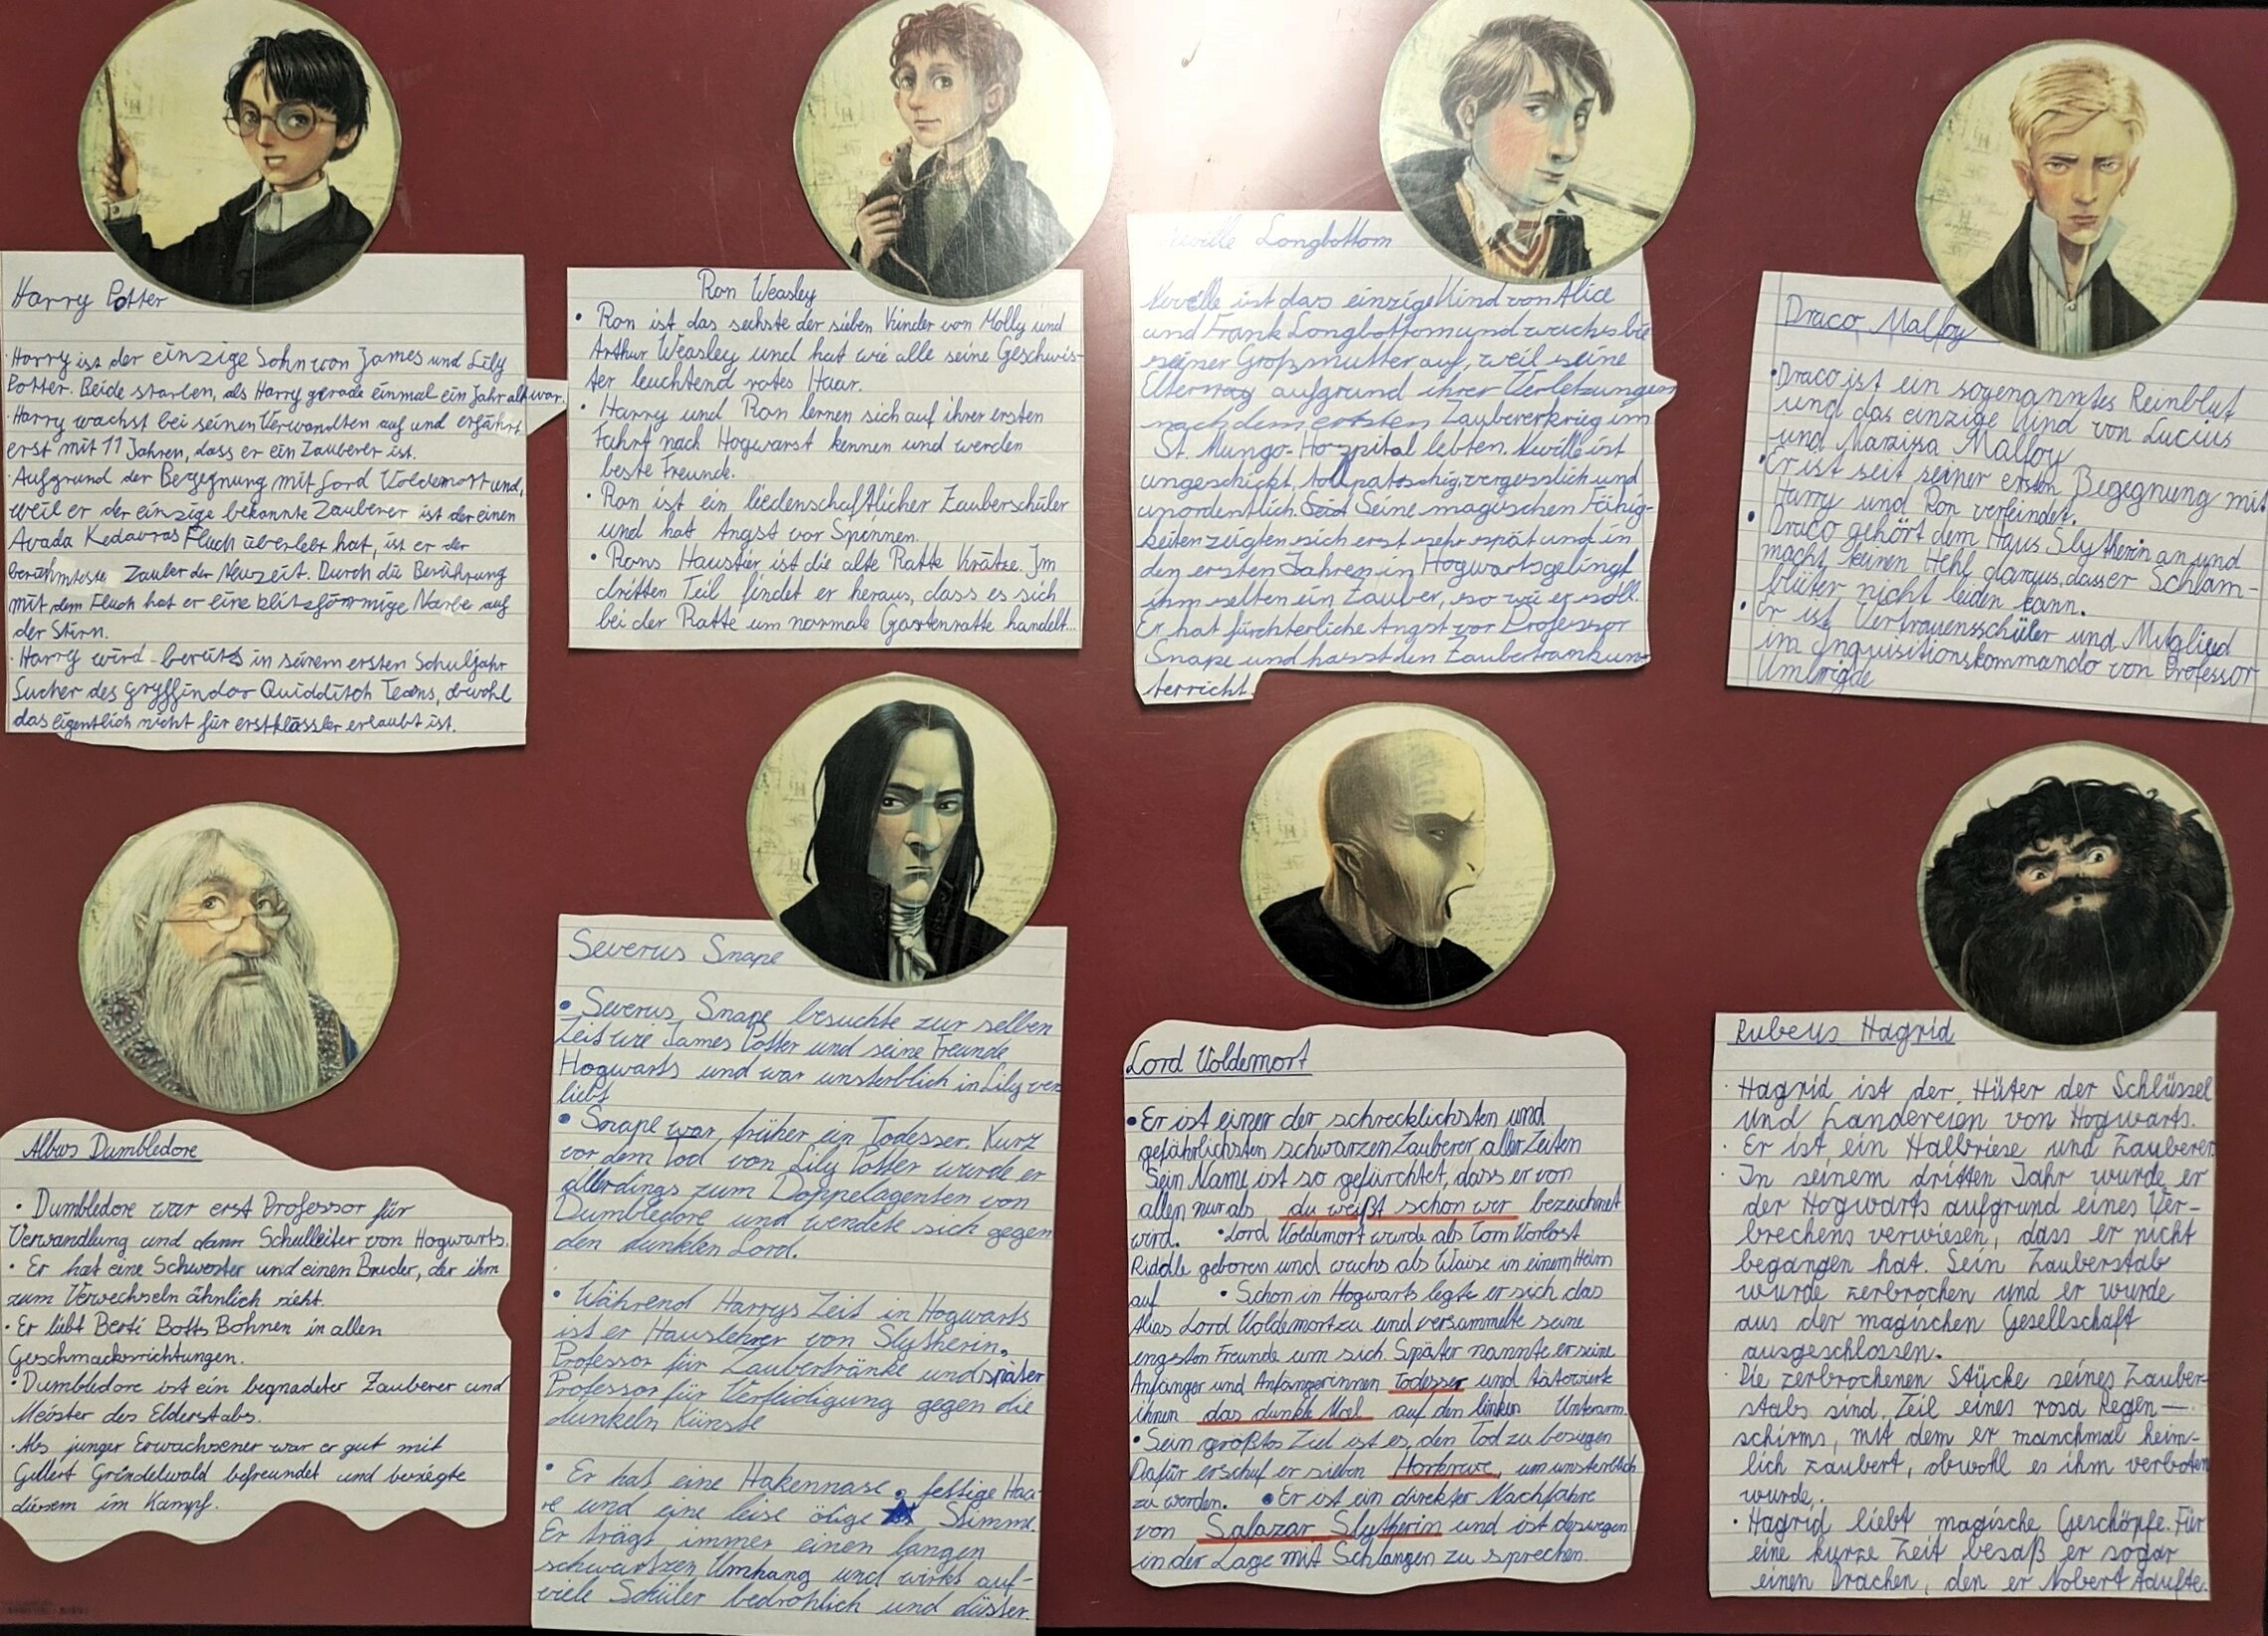 Harry Potter
· Harry ist der einzige Sohn von James und Lily
Potter. Beide starben, als Harry gerade einmal ein Jahr alt war.
· Harry wachst bei seinen Verwandten auf und erfährt
erst mit 11 Jahren, dass er ein Zauberer ist.
· Aufgrund der Begegnung mit Lord Voldemort und,
weil er der einzige bekannte Zauberer ist der einen
Avada Kedavras Fluch überlebt hat, ist er der
berühmteste Zauber der Neuzeit. Durch die Berührung
mit dem Fluch hat er eine blitzförmige Narbe auf
der Stirn.
· Harry wird bereits in seinem ersten Schuljahr
Sucher des Gryffindor Quidditch Teams, obwohl
das eigentlich nicht für erstklässler erlaubt ist.
Ron Weasley
• Ron ist das sechste der sieben Kinder von Molly und
Arthur Weasley und hat wie alle seine Geschwis-
ter leuchtend rotes Haar.
• Harry und Ron lernen sich auf ihrer ersten
Fahrt nach Hogwarst kennen und werden
beste Freunde.
• Ron ist ein liedenschaftlicher Zauberschüler
und hat Angst vor Spinnen.
• Rons Haustier ist die alte Ratte Krätze. Im
dritten Teil findet er heraus, dass es sich
bei der Ratte um normale Gartenratte handelt...
Neville Longbottom
Neville ist das einzige Kind von Alice
und Frank Longbottom und wachs bei
seiner Großmutter auf, weil seine
Eltern aufgrund ihrer Verletzungen
nach dem ersten Zaubererkrieg im
St. Mungo-Hospital lebten. Neville ist
ungeschickt, tollpatschig, vergesslich und
unordentlich. Seine magischen Fähig-
keiten zeigten sich erst sehr spät und in
den ersten Jahren in Hogwarts gelingt
ihm selten ein Zauber, so wie er soll.
Er hat fürchterliche Angst vor Professor
Snape und hasst den Zaubertrankun-
terricht.
Draco Malfoy
• Draco ist ein sogenanntes Reinblut
und das einzige Kind von Lucius
und Narzissa Malfoy
• Er ist seit seiner ersten Begegnung mit
Harry und Ron verfeindet.
• Draco gehört dem Haus Slytherin an und
macht keinen Hehl daraus, dass er Schlam-
blüter nicht leiden kann.
• Er ist Vertrauensschüler und Mitglied
im Inquisitionskommando von Professor
Umbrigde
Albus Dumbledore
• Dumbledore war erst Professor für
Verwandlung und dann Schulleiter von Hogwarts.
• Er hat eine Schwester und einen Bruder, der ihm
zum Verwechseln ähnlich sieht.
• Er liebt Berti Botts Bohnen in allen
Geschmacksrichtungen.
• Dumbledore ist ein begnadeter Zauberer und
Meister des Elderstabs.
• Als junger Erwachsener war er gut mit
Gellert Grindelwald befreundet und besiegte
diesem im Kampf.
Severus Snape
• Severus Snape besuchte zur selben
Zeit wie James Potter und seine Freunde
Hogwarts und war unsterblich in Lily ver
liebt
• Snape war früher ein Todesser. Kurz
vor dem Tod von Lily Potter wurde er
allerdings zum Doppelagenten von
Dumbledore und wendete sich gegen
den dunklen Lord.
• Während Harrys Zeit in Hogwarts
ist er Hauslehrer von Slytherin,
Professor für Zaubertränke und später
Professor für Verteidigung gegen die
dunkeln Künste
• Er hat eine Hakennase, fettige Haa-
re und eine leise ölige Stimme.
Er trägt immer einen langen
schwartzen Umhang und wirkt auf-
viele Schüler bedrohlich und düster.
Lord Voldemort
• Er ist einer der schrecklichsten und
gefährlichsten schwarzen Zauberer aller Zeiten
Sein Name ist so gefürchtet, dass er von
allen nur als du weißt schon wer bezeichnet
wird. • Lord Voldemort wurde als Tom Vorlost
Riddle geboren und wachs als Waise in einem Heim
auf • Schon in Hogwarts legte er sich das
Alias Lord Voldemort zu und versammelte seine
engsten Freunde um sich. Später nannte er seine
Anfänger und Anfängerinnen Todesser und tätowierte
ihnen das dunkle Mal auf den linken Unterarm
• Sein größtes Ziel ist es, den Tod zu besiegen
Dafür erschuf er sieben Horkruxe, um unsterblich
zu werden. • Er ist ein direkter Nachfahre
von Salazar Slytherin und ist deswegen
in der Lage mit Schlangen zu sprechen.
Rubeus Hagrid
· Hagrid ist der Hüter der Schlüssel
und Landereien von Hogwarts.
· Er ist ein Halbriese und Zauberer
· In seinem dritten Jahr wurde er
der Hogwarts aufgrund eines Ver-
brechens verwiesen, dass er nicht
begangen hat. Sein Zauberstab
wurde zerbrochen und er wurde
aus der magischen Gesellschaft
ausgeschlossen.
· Die zerbrochenen Stücke seines Zauber-
stabs sind Teil eines rosa Regen-
schirms, mit dem er manchmal heim-
lich zaubert, obwohl es ihm verboten
wurde.
· Hagrid liebt magische Geschöpfe. Für
eine kurze Zeit besaß er sogar
einen Drachen, den er Nobert taufte.